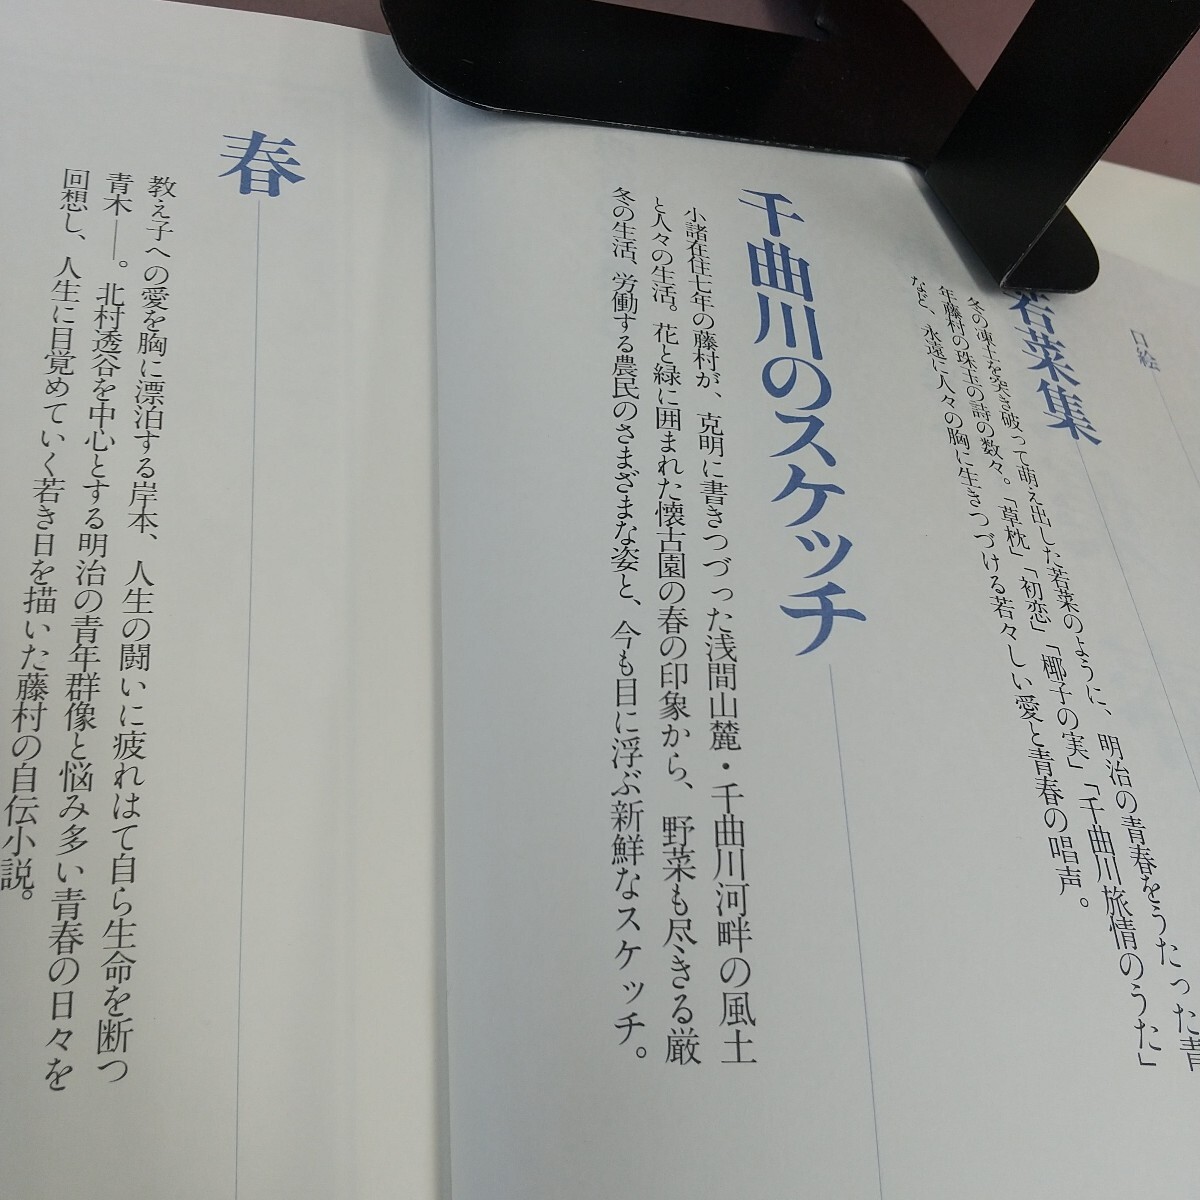 口絵
若菜集
冬の凍土を突き破って萌え出した若菜のように、明治の青春をうたった青
年藤村の珠玉の詩の数々。「草枕」「初恋」「椰子の実」「千曲川旅情のうた」
など、永遠に人々の胸に生きつづける若々しい愛と青春の唱声。
千曲川のスケッチ
小諸在住七年の藤村が、克明に書きつづった浅間山麓・千曲川河畔の風土
と人々の生活。花と緑に囲まれた懐古園の春の印象から、野菜も尽きる厳
冬の生活、労働する農民のさまざまな姿と、今も目に浮ぶ新鮮なスケッチ。
春
教え子への愛を胸に漂泊する岸本、人生の闘いに疲れはて自ら生命を断つ
青木――。北村透谷を中心とする明治の青年群像と悩み多い青春の日々を
回想し、人生に目覚めていく若き日を描いた藤村の自伝小説。